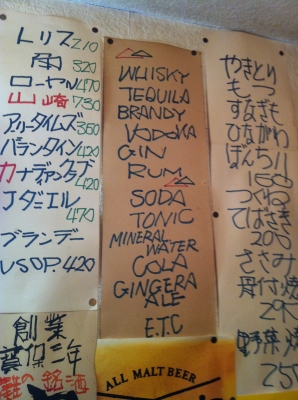 トリス 210
角 320
ローヤル 470
山崎 730
アーリータイムズ 360
バランタイン 420
カナディアンクラブ 420
Jダニエル 470
ブランデー
V.S.O.P. 420
創業
WHISKY
TEQUILA
BRANDY
VODOKA
GIN
RUM
SODA
TONIC
MINERAL
WATER
COLA
GINGERA
ALE
E.T.C
ALL MALT BEER
やきとり
もつ
すなぎも
ひながわ
ぼんちり
160
つくね
てばさき
200
ささみ
骨付焼
野菜焼
250